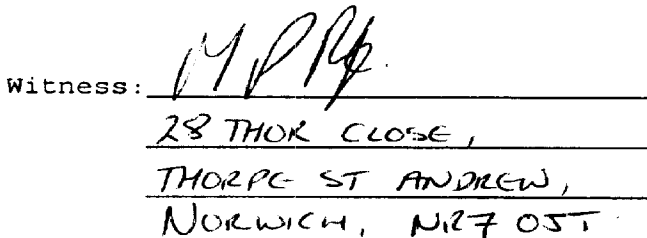 Witness:
28 THOR CLOSE,
THORPE ST ANDREW,
NORWICH, NR7 0JT